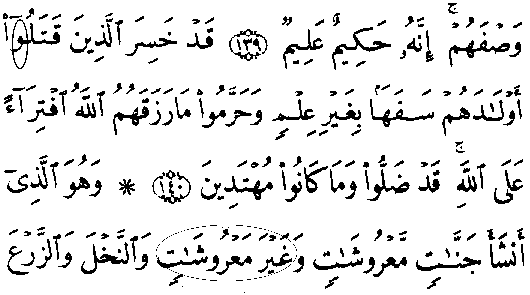 وَصْفَهُمْۚ إِنَّهُۥ حَكِيمٌ عَلِيمٌ ١٣٩ قَدْ خَسِرَ ٱلَّذِينَ قَتَلُوٓا۟
أَوْلَٰدَهُمْ سَفَهًۢا بِغَيْرِ عِلْمٍ وَحَرَّمُوا۟ مَا رَزَقَهُمُ ٱللَّهُ ٱفْتِرَآءً
عَلَى ٱللَّهِۚ قَدْ ضَلُّوا۟ وَمَا كَانُوا۟ مُهْتَدِينَ ١٤٠ * وَهُوَ ٱلَّذِىٓ
أَنشَأَ جَنَّٰتٍ مَّعْرُوشَٰتٍ وَغَيْرَ مَعْرُوشَٰتٍ وَٱلنَّخْلَ وَٱلزَّرْعَ